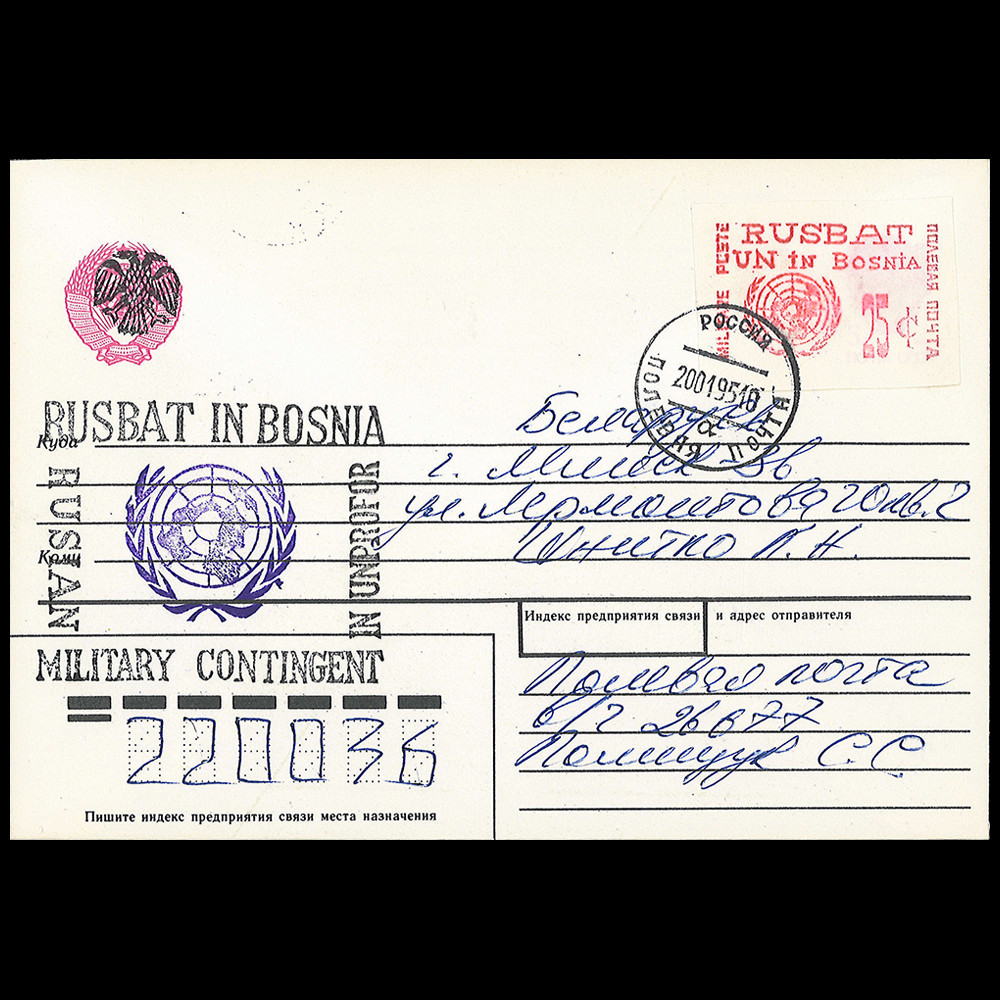 RUSBAT
UN in BOSNIA
25 ¢
ПОЛЕВАЯ ПОЧТА
РОССИЯ
20019518
ПОЛЕВАЯ ПОЧТА
RUSBAT IN BOSNIA
RUSSIAN
IN UNPROFOR
MILITARY CONTINGENT
Куда
Беларусь
г. Минск-36
ул. Лермонтова
Кому
П. Н.
Индекс предприятия связи и адрес отправителя
Полевая почта
в/ч 26877
Полищук С. С
220036
Пишите индекс предприятия связи места назначения